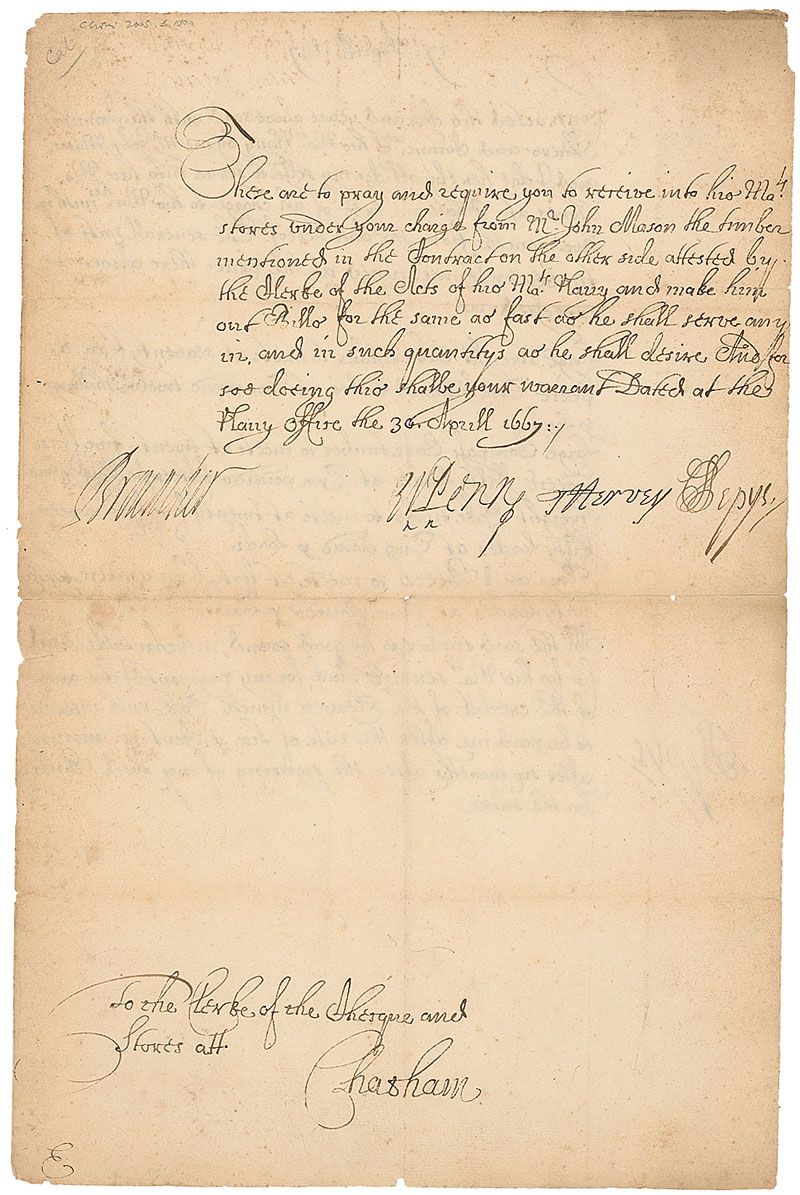 These are to pray and require you to receive into his Ma.ts
stores under your charge from Mr. John Mason the timber
mentioned in the Contract on the other side attested by
the Clerke of the Acts of his Ma.ts Navy and make him
out Bills for the same as fast as he shall serve any
in, and in such quantitys as he shall desire And for
soe doeing this shalbe your warrant Dated at the
Navy Office the 30 Aprill 1667:/
Brouncker W Penn THervey SPepys.
To the Clerke of the Cheque and
Stores att
Chatham